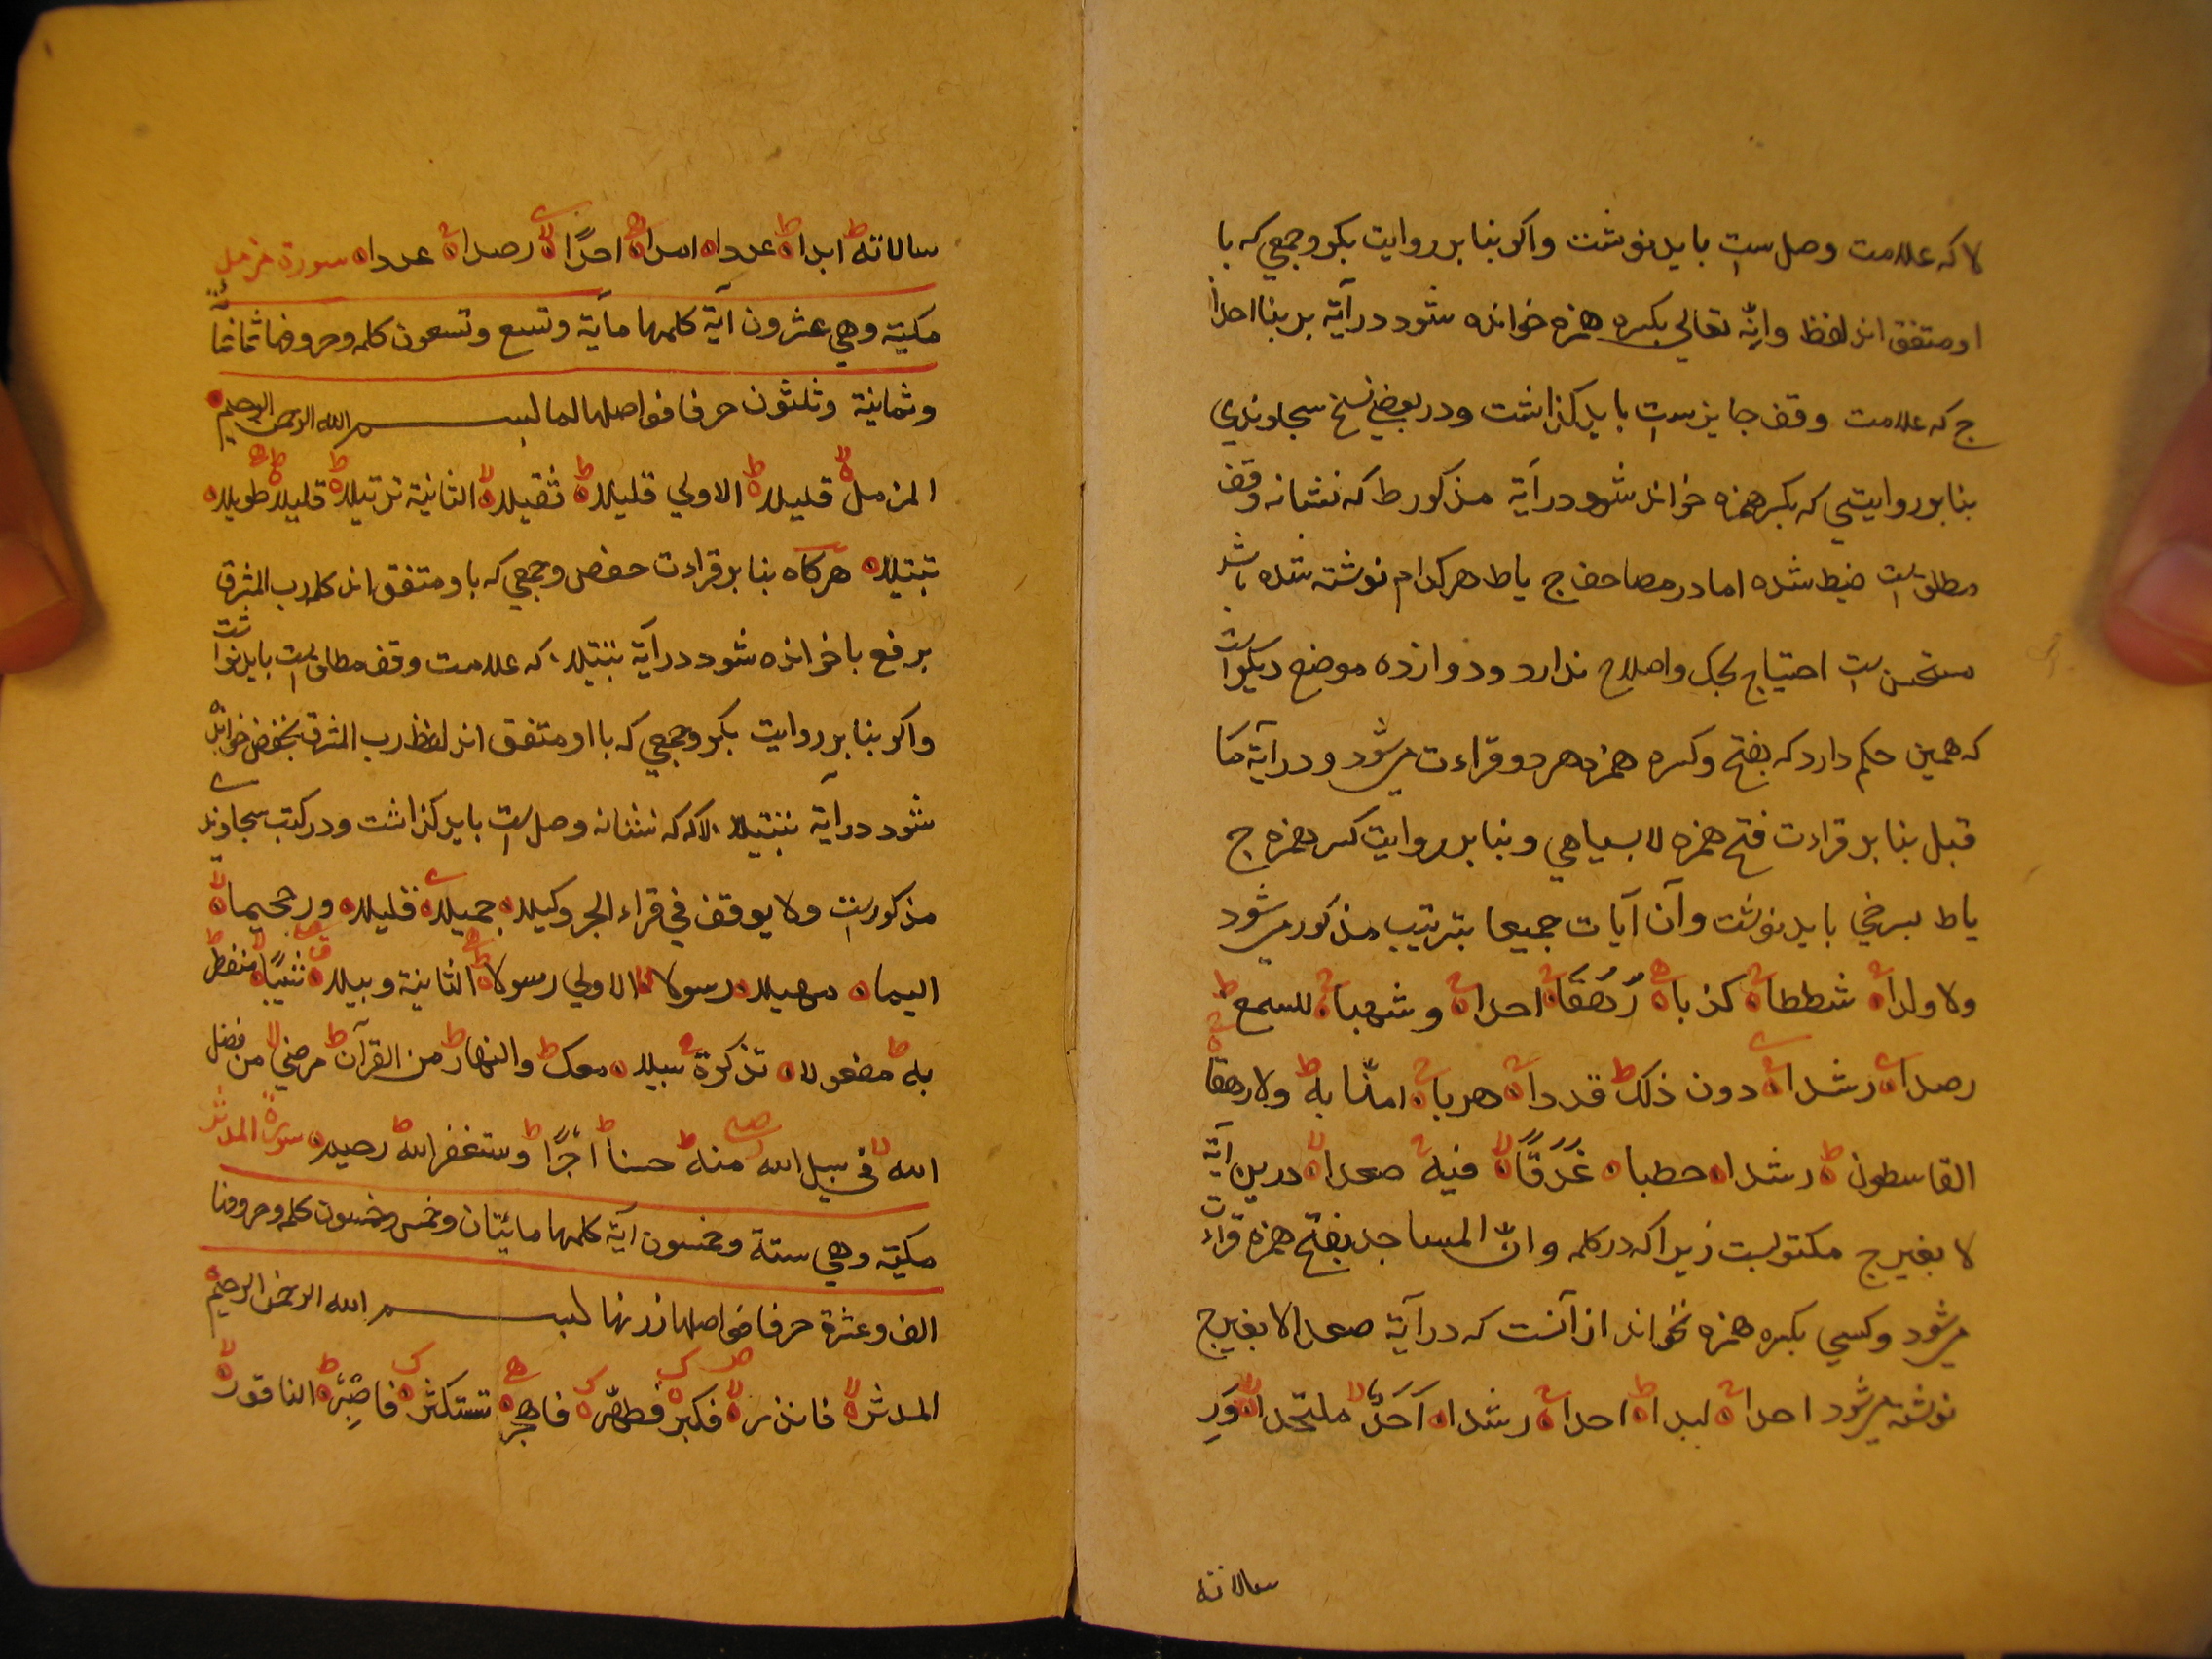 لا که علامت وصل ست باید نوشت و اکر بنا بر روایت بکر و جمعی که با
او متفق اند لفظ وانّه تعالی بکسره همزه خوانده شود در آیة بر بنا احدا
ج که علامت وقف جایز ست باید کذاشت و در بعضی نسخ سجاوندی
بنا بر روایتی که بکسر همزه خوانده شود در آیة مذکور ط که نشانه وقف
مطلق ست ضبط شده اما در مصاحف ج یا ط هر کدام نوشته شده باشد
مستحسن ست احتیاج بحک و اصلاح ندارد و دوازده موضع دیکر است
که همین حکم دارد که بفتح و کسره همزه هر دو قراءت میشود و در آیة ما
قبل بنا بر قراءت فتح همزه لا بسیاهی و بنا بر روایت کسر همزه ج
یا ط بسرخی باید نوشت و آن آیات جمیعا بترتیب مذکور میشود
ولا ولدا ج شططا ج کذبا رَهَقًا ج احدا ج و شهبا ج للسمع ط
رصدا ج رشدا ج دون ذلک ط قددا ج هربا ج امنّا به ط ولا رهقا ج
القاسطون ط رشدا حطبا غَدَقًا لا فیه ج صعدا لا درین آیة
لا بغیر ج مکتوبست زیرا که در کلمه و انّ المساجد بفتح همزه قراءت
میشود و کسی بکسره همزه نخواند از آنست که در آیة صعدا لا بغیر ج
نوشته میشود احدا ج لبدا ط احدا ج رشدا اَحَدٌ لا ملتحدا لا وَرِ
سالاته
سالاته ط ابدا ط عددا امدا احدًا لا رصدا ج عددا سورة مزمل
مکیّة وهی عشرون آیة کلمها مآیة وتسع وتسعون کلمه وحروفها ثمانمائة
وثمانیة وثلثون حرفا فواصلها لما بسم الله الرحمن الرحیم
المزمل لا قلیلا ط الاولی قلیلا ط ثقیلا لا الثانیة ترتیلا ط قلیلا ط طویلا
تبتیلا هرکاه بنا بر قراءت حفص و جمعی که با او متفق اند کلمه رب المشرق
برفع با خوانده شود در آیة تبتیلا ط که علامت وقف مطلق ست باید نوشت
و اکر بنا بر روایت بکر و جمعی که با او متفق اند لفظ رب المشرق بخفض خوانده
شود در آیة تبتیلا لا که نشانه وصل ست باید کذاشت و در کتب سجاوندی
مذکورست ولا یوقف فی قراءة الجر وکیلا جمیلا قلیلا و جحیما لا
الیما مهیلا رسولا لا الاولی رسولا ط الثانیة وبیلا شیبًا منفطر ط
به ط مفعولا تذکرة ج سبیلا معک ط والنهار ط من القرآن ط مرضی لا من فضل
الله لا فی سبیل الله منه ط حسنا ط اجرًا ط وستغفر الله ط رحیم سورة المدثر
مکیّة وهی ستة وخمسون آیة کلمها مائتان وخمس وخمسون کلمه وحروفها
الف وعشرة حرفا فواصلها زرنها بسم الله الرحمن الرحیم
المدثر لا فانذر لا فکبر فطهّر فاهجر تستکثر فاصبر ط الناقور لا